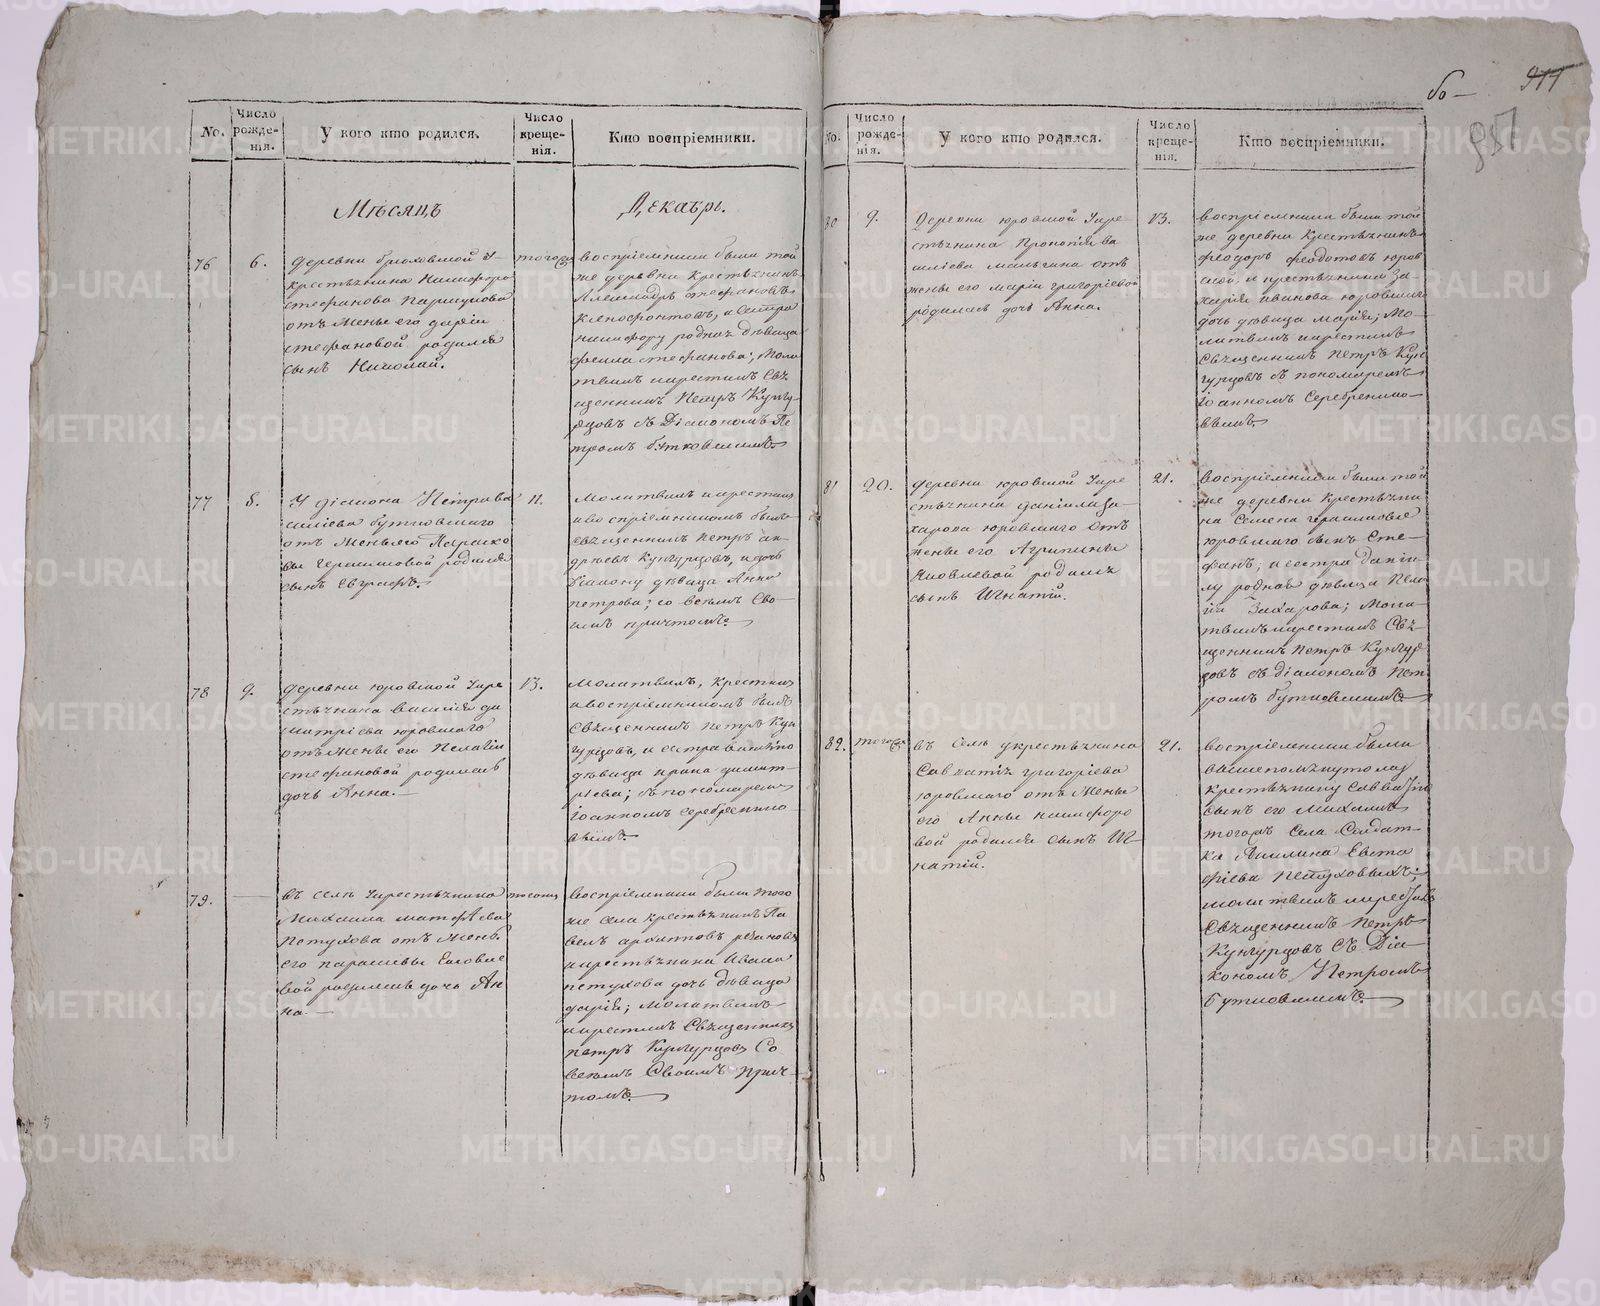 бо—
977
957
No.
Число рожде-нія.
У кого кто родился.
Число креще-нія.
Кто воспріемники.
Мѣсяцъ
Декабрь.
76
6.
деревни
крестьянина Никифора
стефанова
отъ жены его дарьи
стефановой родился
сынъ Николай.
тогожъ
воспріемники были той
же деревни крестьянинъ
стефановъ
никифору родная дѣвица
стефанова; моли
твилъ и крестилъ Свя
щенникъ Петръ Кунгу
рцовъ съ Діакономъ Пе
тромъ бутковскимъ.
77
8.
У діакона Петра ва
силіева бутковскаго
отъ жены его Параско
вы герасимовой родился
сынъ Евграфъ.
11.
Молитвилъ и крестилъ
и воспріемникомъ былъ
священникъ петръ ан
дреевъ Кунгурцовъ, и дочь
діакону дѣвица Анна
петрова; со всемъ Сво
имъ причтомъ.
78
9.
деревни юровской у кре
стьянина василія ди
митріева юровскаго
отъ жены его Пелагіи
стефановой родилась
дочь Анна.
13.
Молитвилъ, крестилъ
и воспріемникомъ былъ
Священникъ петръ Кун
гурцовъ, и сестра
дѣвица ирина димит
ріева; съ пономаремъ
іоанномъ серебренико
вымъ.
79.
—
въ селѣ у крестьянина
Михаила матфѣева
Петухова отъ жены
его парасковы
вой родилась дочь Ан
на.
воспріемники были того
же села крестьянинъ Па
велъ
и крестьянина Ивана
петухова дочь дѣвица
дарія; молитвилъ
и крестилъ Священникъ
петръ Кунгурцовъ Со
всемъ Своимъ прич
томъ.
No.
Число рожде-нія.
У кого кто родился.
Число креще-нія.
Кто воспріемники.
80
9.
деревни юровской у кре
стьянина Прокопія ва
силіева мальгина отъ
жены его маріи григоріевой
родилась дочь Анна.
13.
воспріемники были той
же деревни крестьянинъ
феодоръ феодотовъ юров
ской, и крестьянина За
харія иванова юровскаго
дочь дѣвица марія; Мо
литвилъ и крестилъ
Священникъ петръ Кун
гурцовъ съ пономаремъ
іоанномъ Серебренико
вымъ.
81
20.
деревни юровской у кре
стьянина даніила За
харова юровскаго отъ
жены его Агрипины
Яковлевой родился
сынъ Игнатій.
21.
воспріемники были той
же деревни крестьяни
на Семена герасимова
юровскаго сынъ Сте
фанъ; и сестра дані
лу родная дѣвица Пела
гія Захарова; Моли
твилъ и крестилъ Свя
щенникъ петръ Кунгур
цовъ съ діакономъ Пет
ромъ бутковскимъ.
82.
тогожъ
въ Селѣ у крестьянина
Савватія григоріева
юровскаго отъ жены
его Анны никифоро
вой родился сынъ Иг
натій.
21.
воспріемники были
вышепомянутому
крестьянину Савватію
сынъ его Михаилъ
тогожъ Села Солдат
ка Акилина Евста
фіева Петуховыхъ;
молитвилъ и крестилъ
Священникъ Петръ
Кунгурцовъ Съ Діа
кономъ Петромъ
бутковскимъ.